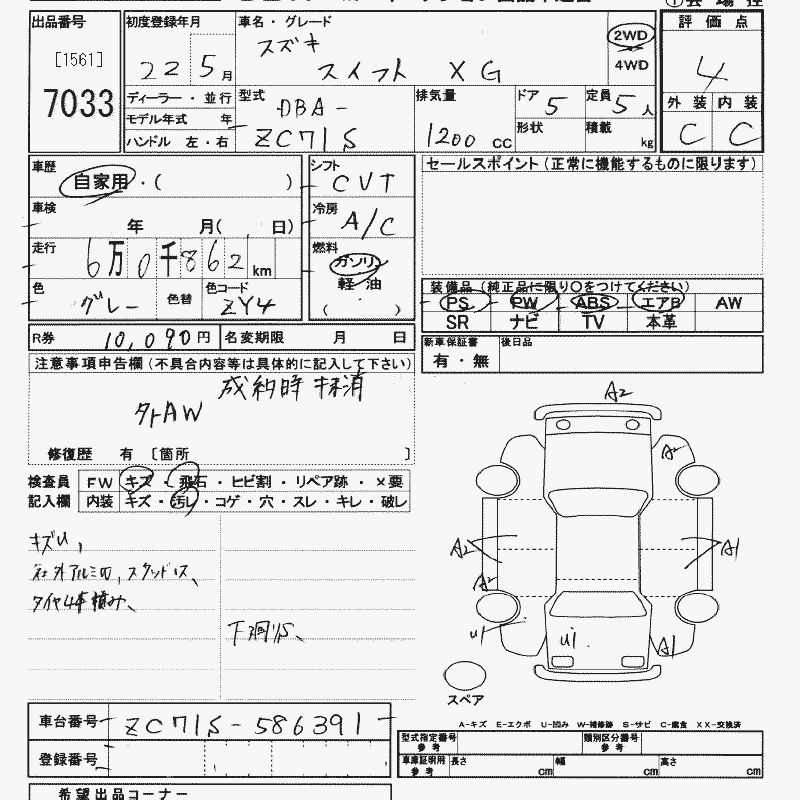 出品番号
[1561]
7033
初度登録年月
22 5月
車名・グレード
スズキ
スイフト XG
2WD
4WD
評価点
4
外装 内装
C C
ディーラー・並行
モデル年式 年
ハンドル 左・右
型式
DBA-
ZC71S
排気量
1200 CC
ドア 5
定員 5人
形状
積載 kg
車歴
自家用・( )
車検
年 月( 日)
走行
6万0千862 km
色
グレー
色替
色コード
ZY4
シフト
CVT
冷房
A/C
燃料
ガソリン
軽・油
( )
セールスポイント(正常に機能するものに限ります)
装備品(純正品に限り○をつけてください)
PS PW ABS エアB AW
SR ナビ TV 本革
R券 10,090円 名変期限 月 日
新車保証書 後日品
有・無
注意事項申告欄(不具合内容等は具体的に記入して下さい)
成約時抹消
AW
修復歴 有 〔箇所 〕
検査員 FW キズ・飛石・ヒビ割・リペア跡・×要
記入欄 内装 キズ・汚レ・コゲ・穴・スレ・キレ・破レ
キズU,
社外アルミ凹, スタッドレス、
タイヤ4本積み、
下廻りS、
A2
A2
A2
A1
A2
U1
U1
A1
スペア
A-キズ E-エクボ U-凹み W-補修跡 S-サビ C-腐食 XX-交換済
車台番号 ZC71S-586391
登録番号
型式指定番号 参考
類別区分番号 参考
車庫証明用 参考 長さ cm 幅 cm 高さ cm
希望出品コーナー